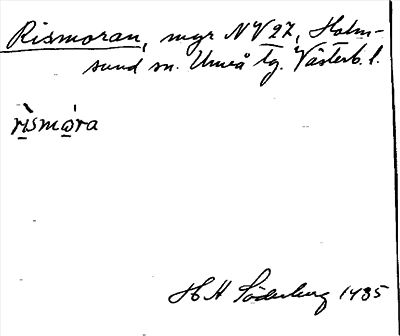 Rismoran, mgr NV27, Holm-
sund sn. Umeå tg. Västerb. l.
rı̀smo̱ra
H H Söderberg 1935